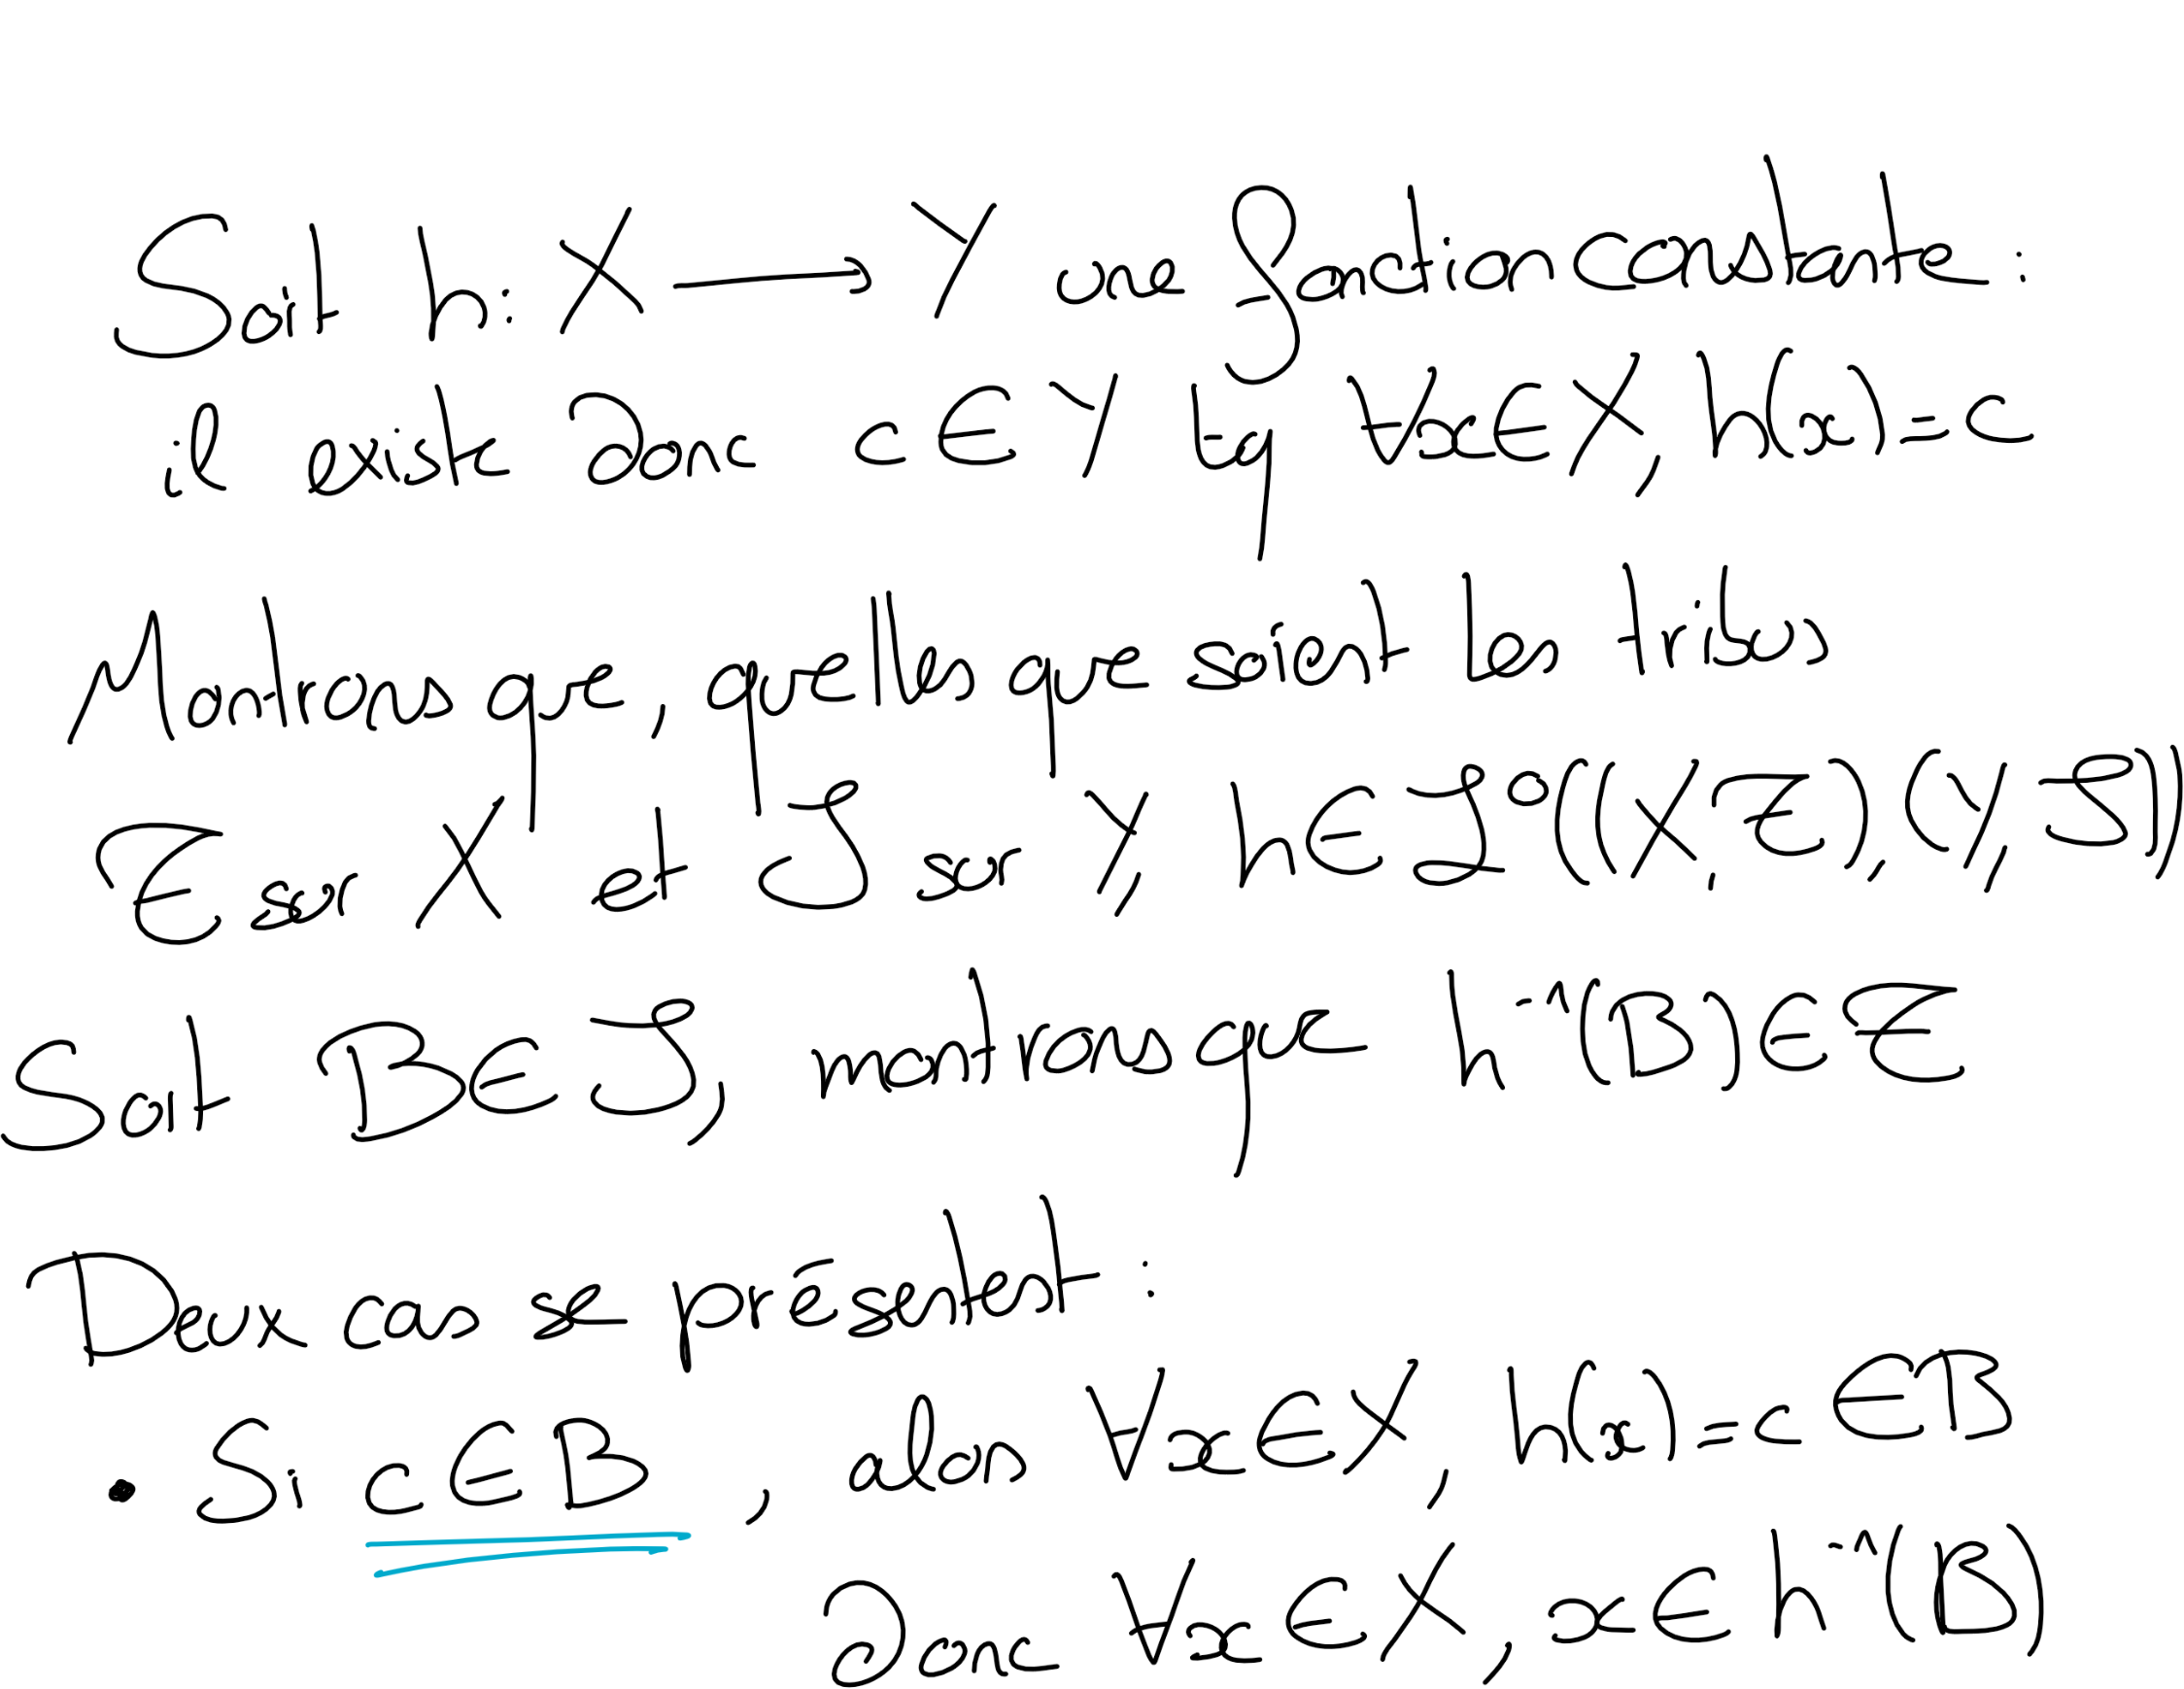 Soit h: X → Y une fonction constante :
il existe donc c ∈ Y tq ∀x ∈ X, h(x) = c
Montrons que, quelles que soient les tribus
𝓔 sur X et 𝓕 sur Y, h ∈ 𝓛⁰((X, 𝓔), (Y, 𝓕))
Soit B ∈ 𝓕, montrons que h⁻¹(B) ∈ 𝓔
Deux cas se présentent :
• Si c ∈ B, alors ∀x ∈ X, h(x) = c ∈ B
donc ∀x ∈ X, x ∈ h⁻¹(B)